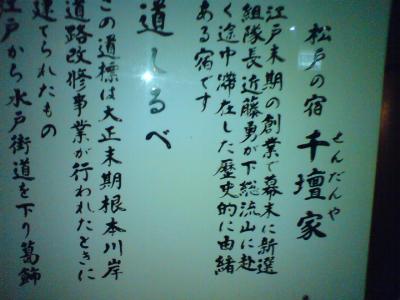 松戸の宿 千壇家
せんだんや
江戸末期の創業で幕末に新選
組隊長近藤勇が下総流山に赴
く途中滞在した歴史的に由緒
ある宿です
道しるべ
この道標は大正末期根本川岸
道路改修事業が行われたときに
建てられたもの
江戸から水戸街道を下り葛飾